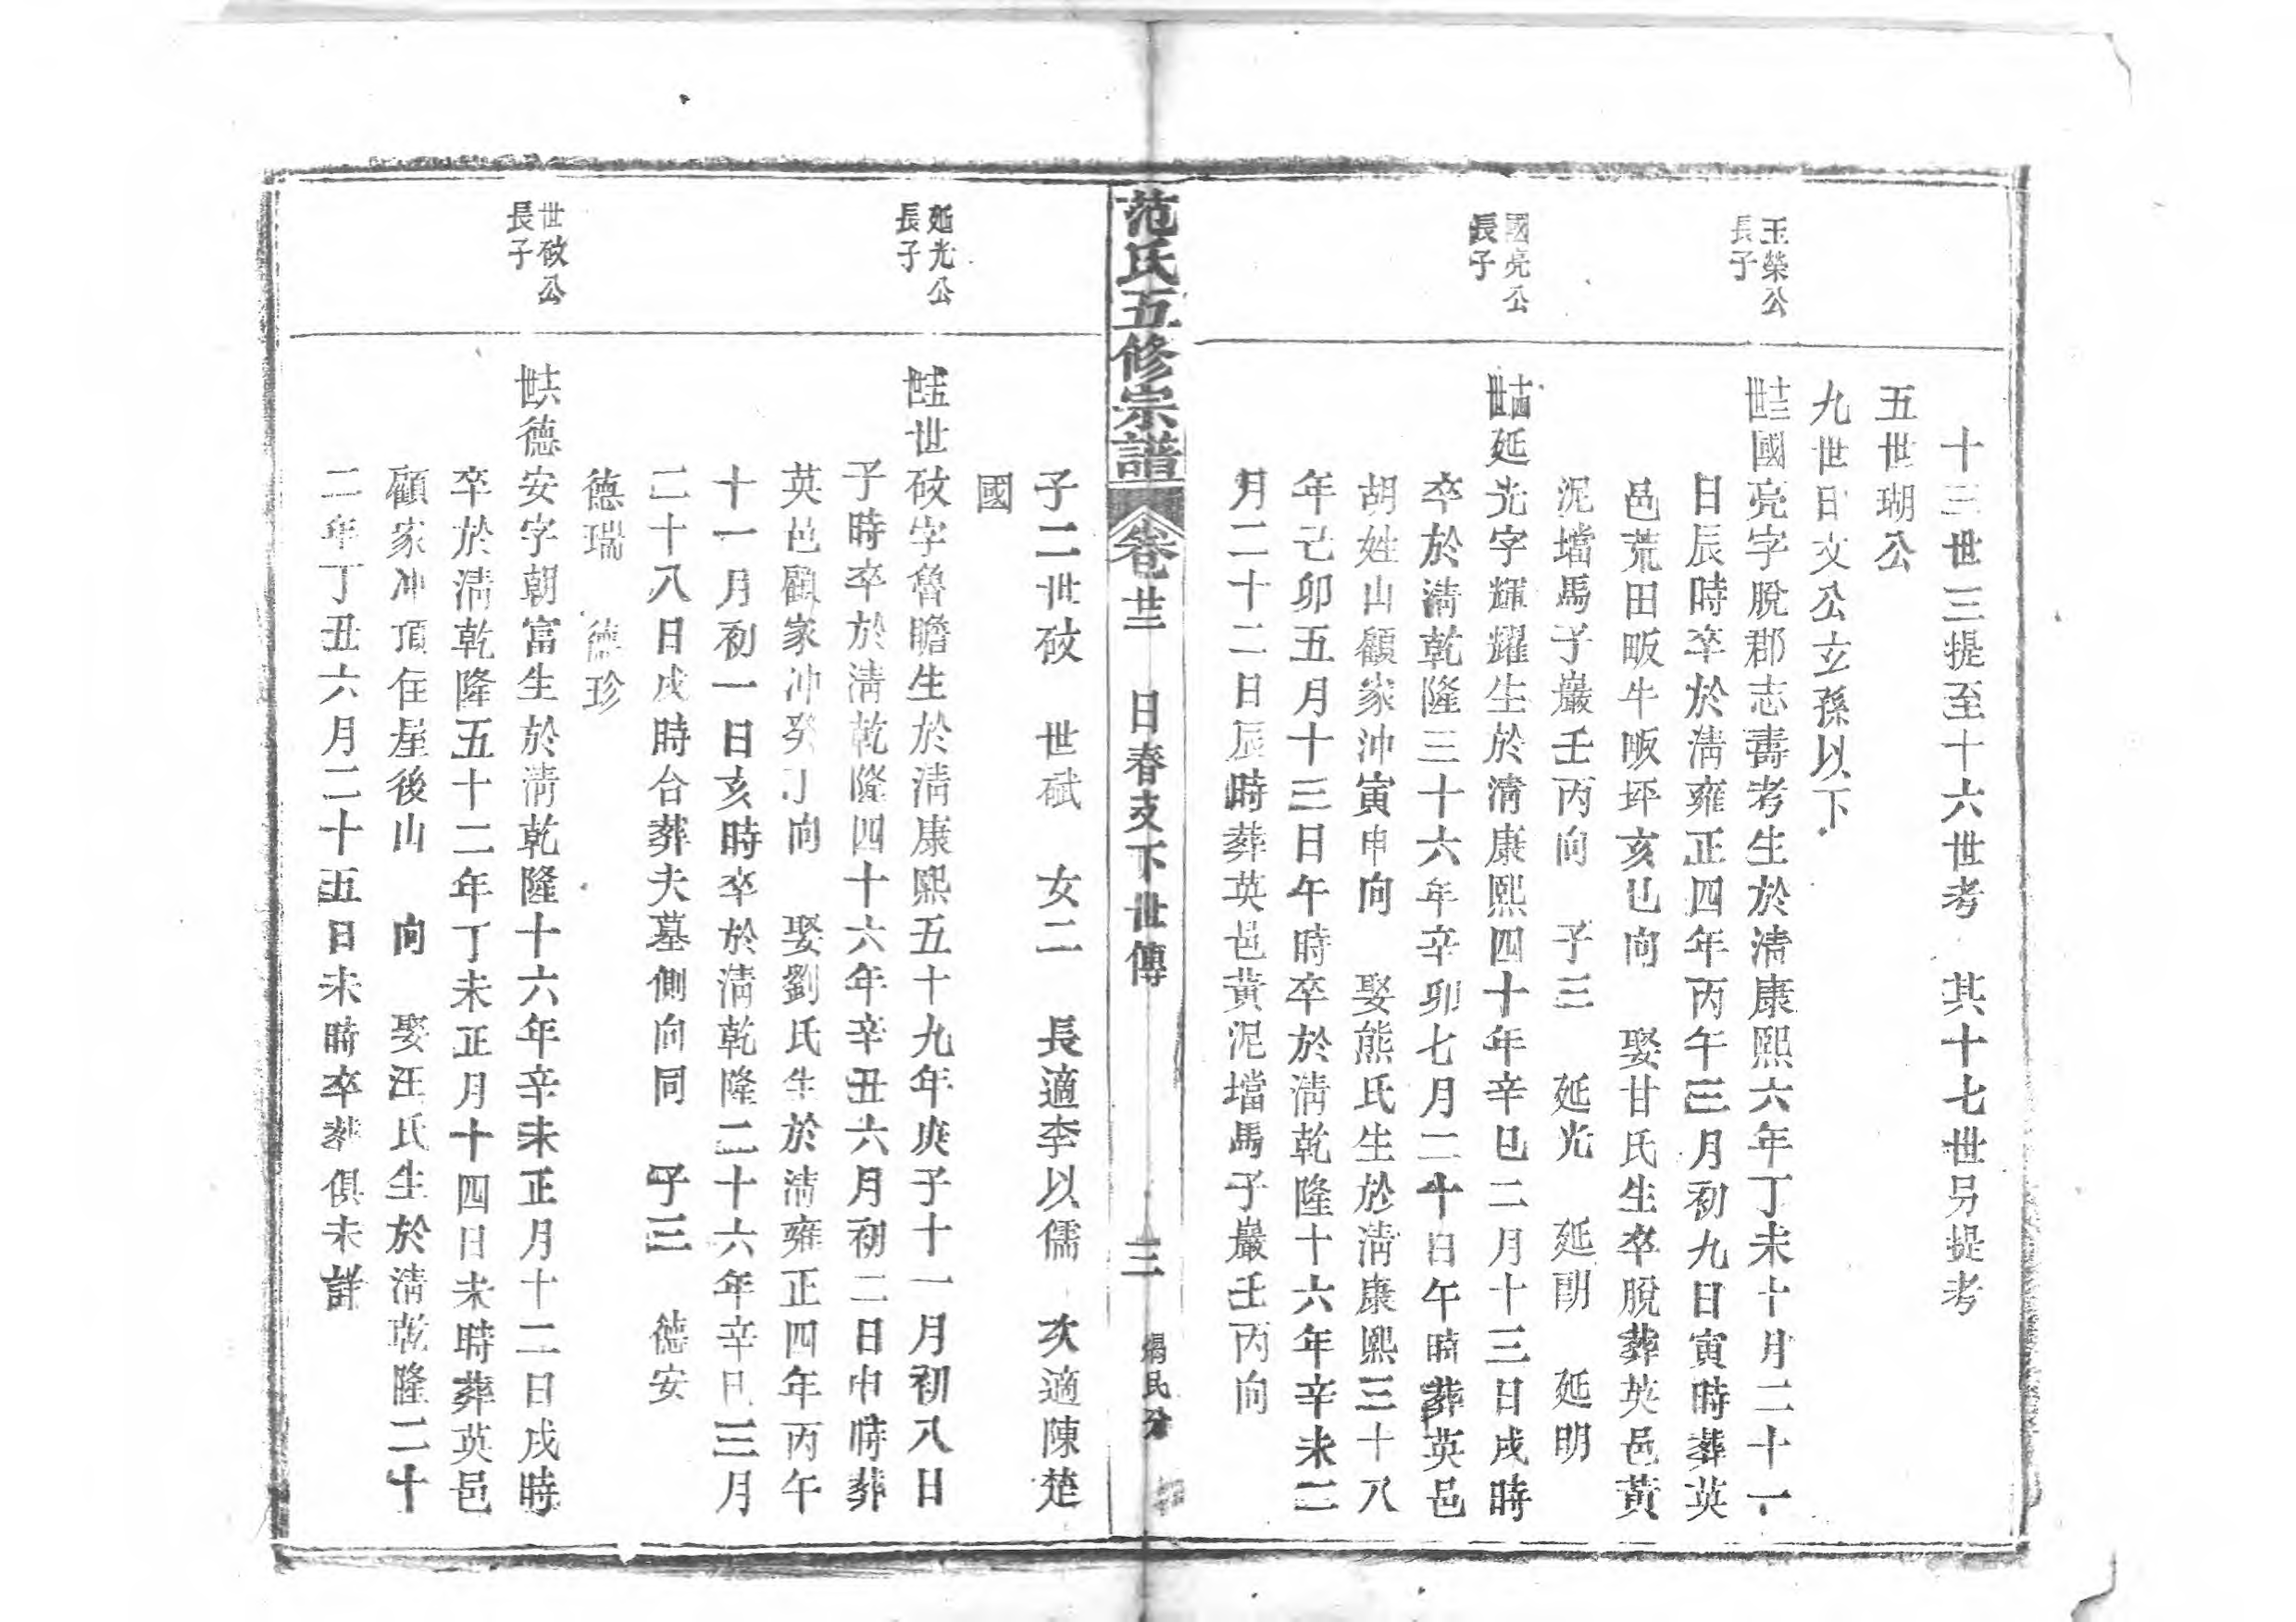 十三世三提至十六世考　其十七世另提考
五世瑚公
九世日文公玄孫以下
玉榮公
長子
十三世國亮字脫郡志壽考生於淸康熙六年丁未十月二十一
日辰時卒於淸雍正四年丙午三月初九日寅時葬英
邑荒田畈牛畈坪亥巳向　娶甘氏生卒脫葬英邑黃
泥壋馬子巖壬丙向　子三　延光　延　延明
國亮公
長子
十四世延光字輝耀生於淸康熙四十年辛巳二月十三日戌時
卒於淸乾隆三十六年辛卯七月二十日午時葬英邑
胡姓山顧家沖寅申向　娶熊氏生於淸康熙三十八
年己卯五月十三日午時卒於淸乾隆十六年辛未二
月二十二日辰時葬英邑黃泥壋馬子巖壬丙向
范氏五修宗譜
卷廿三　日春支下世傳
三
子二世玫　世珷　女二　長適李以儒　次適陳楚
國
延光公
長子
十五世世玫字魯瞻生於淸康熙五十九年庚子十一月初八日
子時卒於淸乾隆四十六年辛丑六月初二日申時葬
英邑顧家沖癸丁向　娶劉氏生於淸雍正四年丙午
十一月初一日亥時卒於淸乾隆二十六年辛巳三月
二十八日戌時合葬夫墓側向同　子三　德安
德瑞　德珍
世玫公
長子
十六世德安字朝富生於淸乾隆十六年辛未正月十二日戌時
卒於淸乾隆五十二年丁未正月十四日未時葬英邑
顧家冲頂住屋後山　向　娶汪氏生於淸乾隆二十
二年丁丑六月二十五日未時卒葬俱未詳